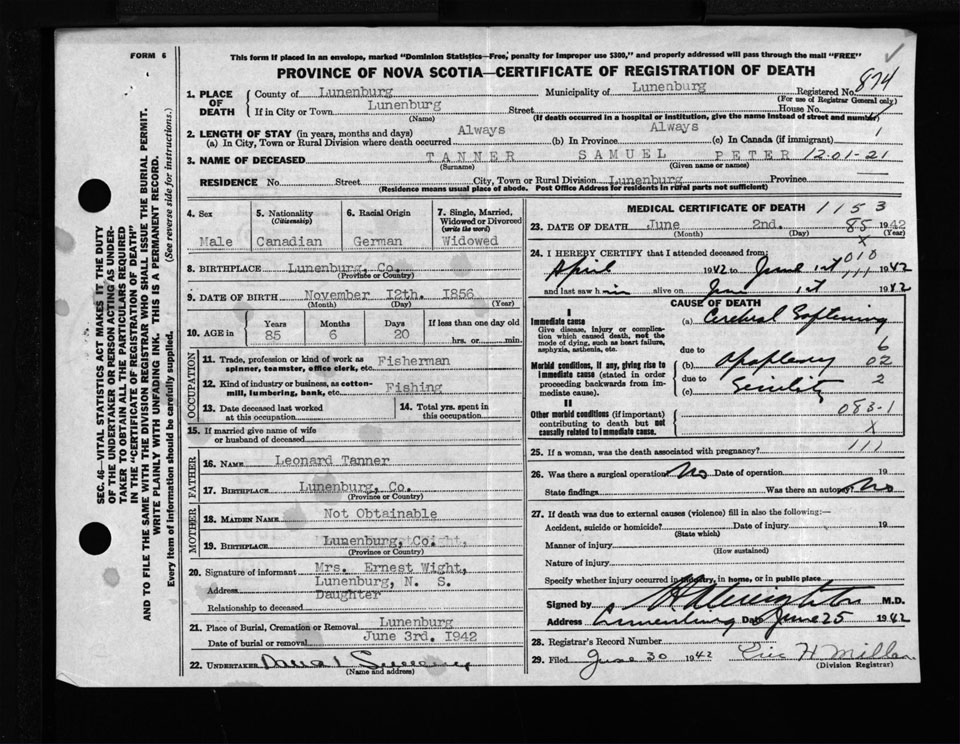 FORM 6
This form if placed in an envelope, marked "Dominion Statistics—Free, penalty for improper use $300," and properly addressed will pass through the mail "FREE"
PROVINCE OF NOVA SCOTIA—CERTIFICATE OF REGISTRATION OF DEATH
874
1. PLACE OF DEATH
County of Lunenburg Municipality of Lunenburg Registered No.
(For use of Registrar General only)
If in City or Town Lunenburg Street House No.
(Name) (If death occurred in a hospital or institution, give the name instead of street and number)
2. LENGTH OF STAY (in years, months and days)
(a) In City, Town or Rural Division where death occurred Always (b) In Province Always (c) In Canada (if immigrant) 1
3. NAME OF DECEASED TANNER SAMUEL PETER 12-01-21
(Surname) (Given name or names)
RESIDENCE No. Street City, Town or Rural Division Lunenburg Province
(Residence means usual place of abode. Post Office Address for residents in rural parts not sufficient)
4. Sex
Male
5. Nationality (Citizenship)
Canadian
6. Racial Origin
German
7. Single, Married, Widowed or Divorced (write the word)
Widowed
8. BIRTHPLACE Lunenburg, Co.
(Province or Country)
9. DATE OF BIRTH November 12th. 1856
(Month) (Day) (Year)
10. AGE in
Years Months Days If less than one day
85 6 20 hrs. or min.
OCCUPATION
11. Trade, profession or kind of work as spinner, teamster, office clerk, etc. Fisherman
12. Kind of industry or business, as cotton-mill, lumbering, bank, etc. Fishing
13. Date deceased last worked at this occupation
14. Total yrs. spent in this occupation
15. If married give name of wife or husband of deceased
FATHER
16. NAME Leonard Tanner
17. BIRTHPLACE Lunenburg, Co.
(Province or Country)
MOTHER
18. MAIDEN NAME Not Obtainable
19. BIRTHPLACE Lunenburg, Co.
(Province or Country)
20. Signature of informant Mrs. Ernest Wight,
Address Lunenburg, N. S.
Relationship to deceased Daughter
21. Place of Burial, Cremation or Removal Lunenburg
Date of burial or removal June 3rd. 1942
22. UNDERTAKER
(Name and address)
MEDICAL CERTIFICATE OF DEATH 1153
23. DATE OF DEATH June 2nd. 1942
(Month) (Day) (Year)
85
X
24. I HEREBY CERTIFY that I attended deceased from:
010
April 1942 to June 1st 1942
111
and last saw him alive on June 1st 1942
CAUSE OF DEATH
I
Immediate cause
Give disease, injury or complication which caused death, not the mode of dying, such as heart failure, asphyxia, asthenia, etc.
(a) Cerebral Softening
6
due to
(b) Apoplexy 02
Morbid conditions, if any, giving rise to immediate cause (stated in order proceeding backwards from immediate cause).
due to
(c) Senility 2
II
Other morbid conditions (if important) contributing to death but not causally related to immediate cause.
083-1
X
25. If a woman, was the death associated with pregnancy?
111
26. Was there a surgical operation? No Date of operation 19
State findings Was there an autopsy? No
27. If death was due to external causes (violence) fill in also the following:—
Accident, suicide or homicide? Date of injury 19
(State which)
Manner of injury
(How sustained)
Nature of injury
Specify whether injury occurred in industry, in home, or in public place
Signed by M.D.
Address Lunenburg Date June 25 1942
28. Registrar's Record Number
29. Filed June 30 1942 Eric H Millen
(Division Registrar)
SEC. 46—VITAL STATISTICS ACT MAKES IT THE DUTY
OF THE UNDERTAKER OR PERSON ACTING AS UNDER-
TAKER TO OBTAIN ALL THE PARTICULARS REQUIRED
IN THE "CERTIFICATE OF REGISTRATION OF DEATH"
AND TO FILE THE SAME WITH THE DIVISION REGISTRAR WHO SHALL ISSUE THE BURIAL PERMIT.
WRITE PLAINLY WITH UNFADING INK. THIS IS A PERMANENT RECORD.
Every item of information should be carefully supplied. (See reverse side for instructions.)